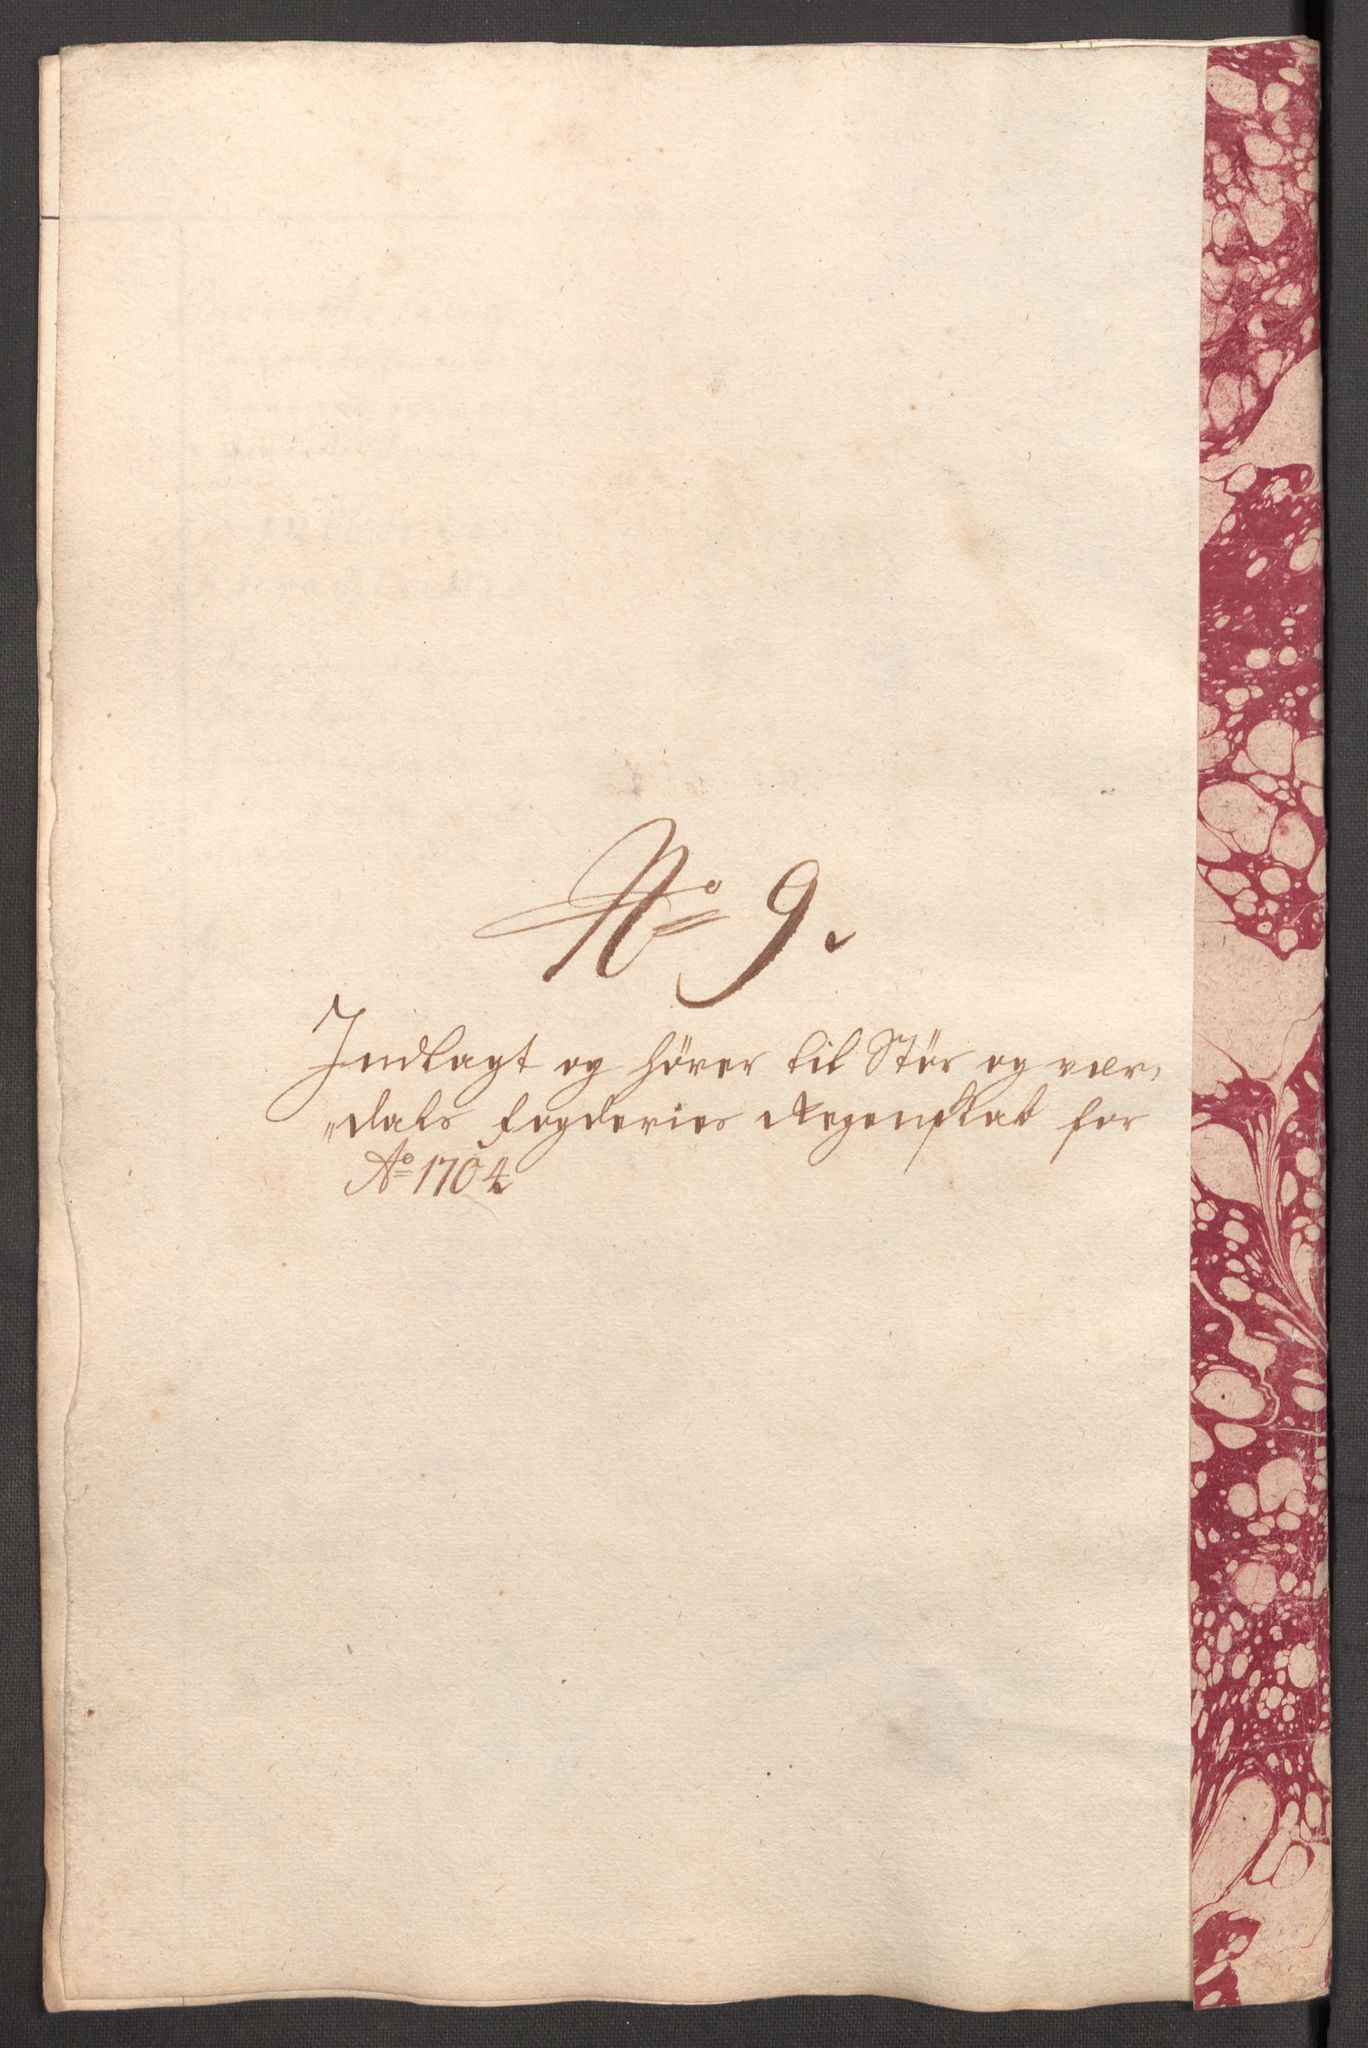 No 9.
Indlagt og hører til Stør og vær-
"dals fogderies Regenskab for
Ao 1704